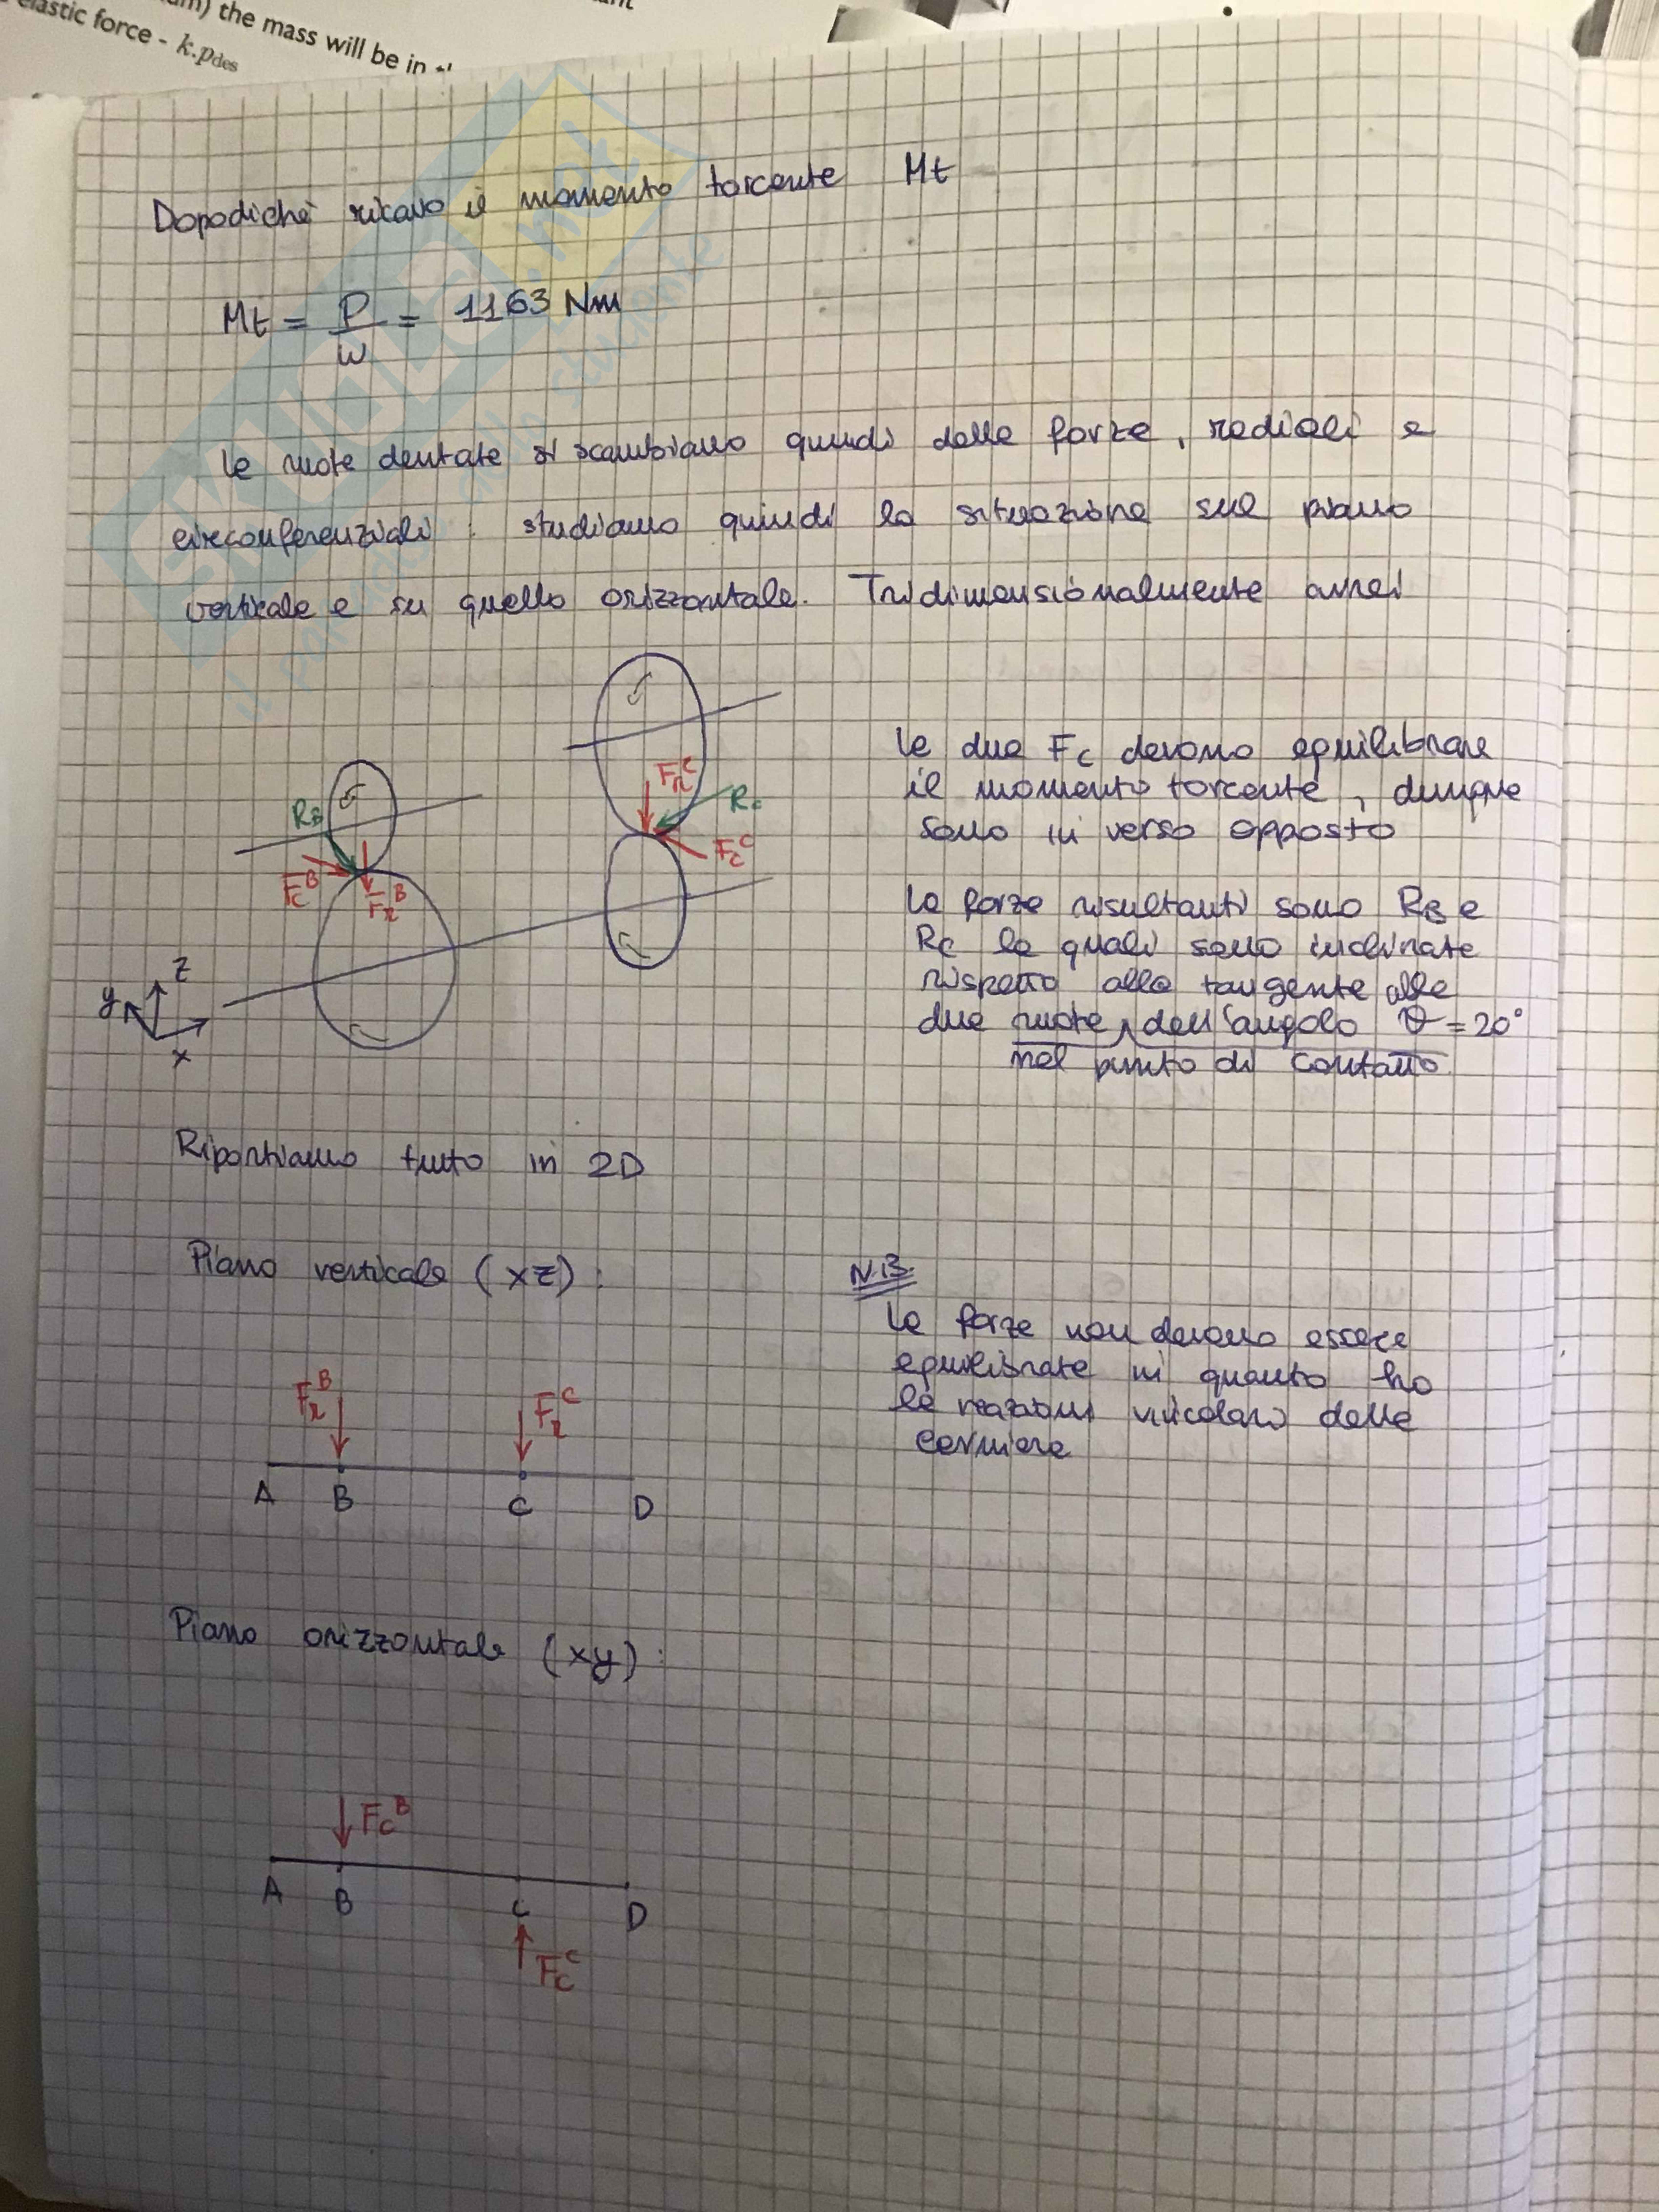 um) the mass will be in
elastic force - k.pdes
SKUOLA.net
il paradiso dello studente
Dopodiché ricavo il momento torcente Mt
Mt = P/ω = 1163 Nm
le ruote dentate si scambiano quindi delle forze, radiali e
circonferenziali: studiamo quindi la situazione sul piano
verticale e su quello orizzontale. Tridimensionalmente avrei
RB
FcB
FrB
FrC
Rc
FcC
z
y
x
le due Fc devono equilibrare
il momento torcente, dunque
sono in verso opposto
le forze risultanti sono RB e
RC le quali sono inclinate
rispetto alla tangente alle
due ruote, dell'angolo ϑ = 20°
nel punto di contatto
Riportiamo tutto in 2D
Piano verticale (xz):
FrB
FrC
A B C D
N.B.
le forze non devono essere
equilibrate in quanto ho
le reazioni vincolari delle
cerniere
Piano orizzontale (xy):
FcB
A B C D
FcC